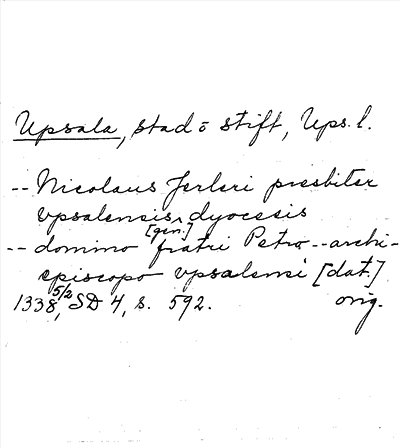 Upsala, stad o stift, Ups. l.
-- Nicolaus Jerleri presbiter
vpsalensis dyocesis
[gen.]
-- domino fratri Petro -- archi-
episcopo vpsalensi [dat.]
1338 5/2, SD 4, s. 592. orig.